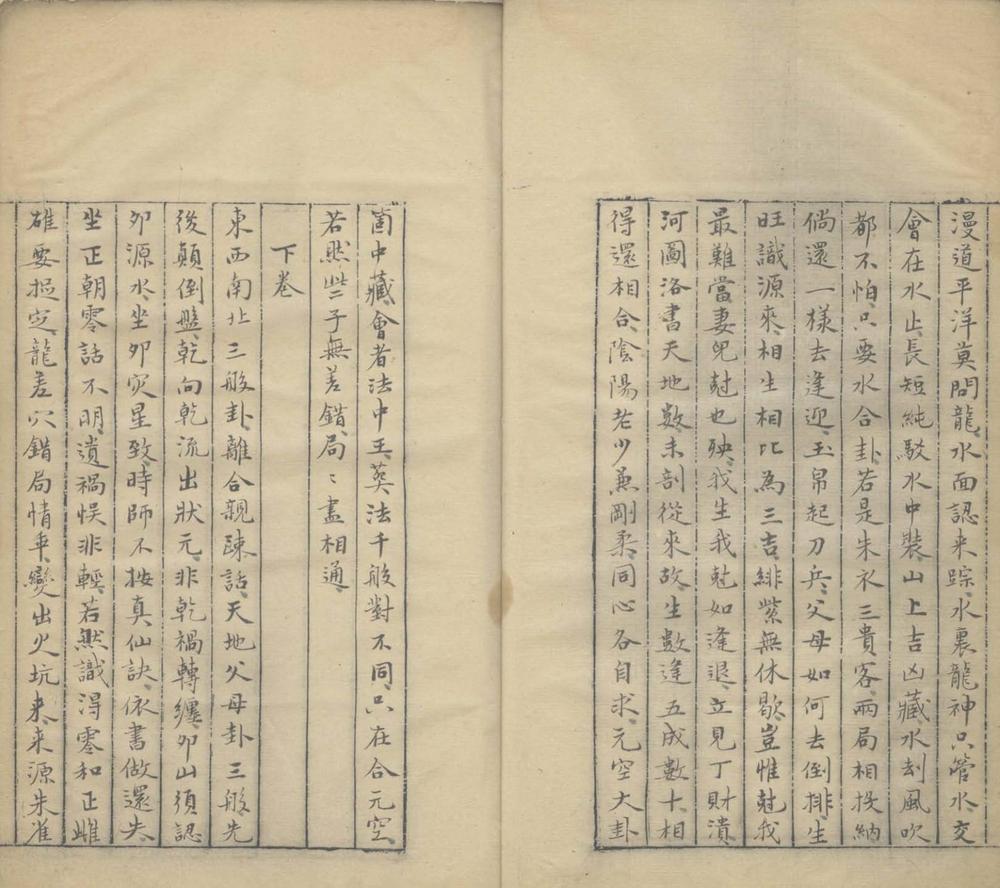 漫道平洋莫問龍、水面認来踪、水裏龍神只管水、交
會在水止、長短純駁水中裝、山上吉凶藏、水刦風吹
都不怕、只要水合卦、若是朱衣三貴客、兩局相投納
倘還一樣去逢迎、玉帛起刀兵、父母如何去倒排、生
旺識源來、相生相比為三吉、緋紫無休歇、豈惟尅我
最難當、妻兒尅也殃、我生我尅如逢退、立見丁財潰
河圖洛書天地數、未剖從來故、生數逢五成數十、相
得還相合、陰陽老少兼剛柔、同心各自求、元空大卦
箇中藏、會者法中王、葬法千般對不同、只在合元空、
若然些子無差錯、局〻盡相通、
下卷
東西南北三般卦、離合親疎話、天地父母卦三般、先
後顛倒盤、乾向乾流出狀元、非乾禍轉纏、卯山須認
卯源水、坐卯灾星致、時師不按真仙訣、依書做還失、
坐正朝零話不明、遺禍悮非輕、若然識得零和正、雌
雄要挨定、龍差穴錯局情乖、變出火坑来、来源朱雀